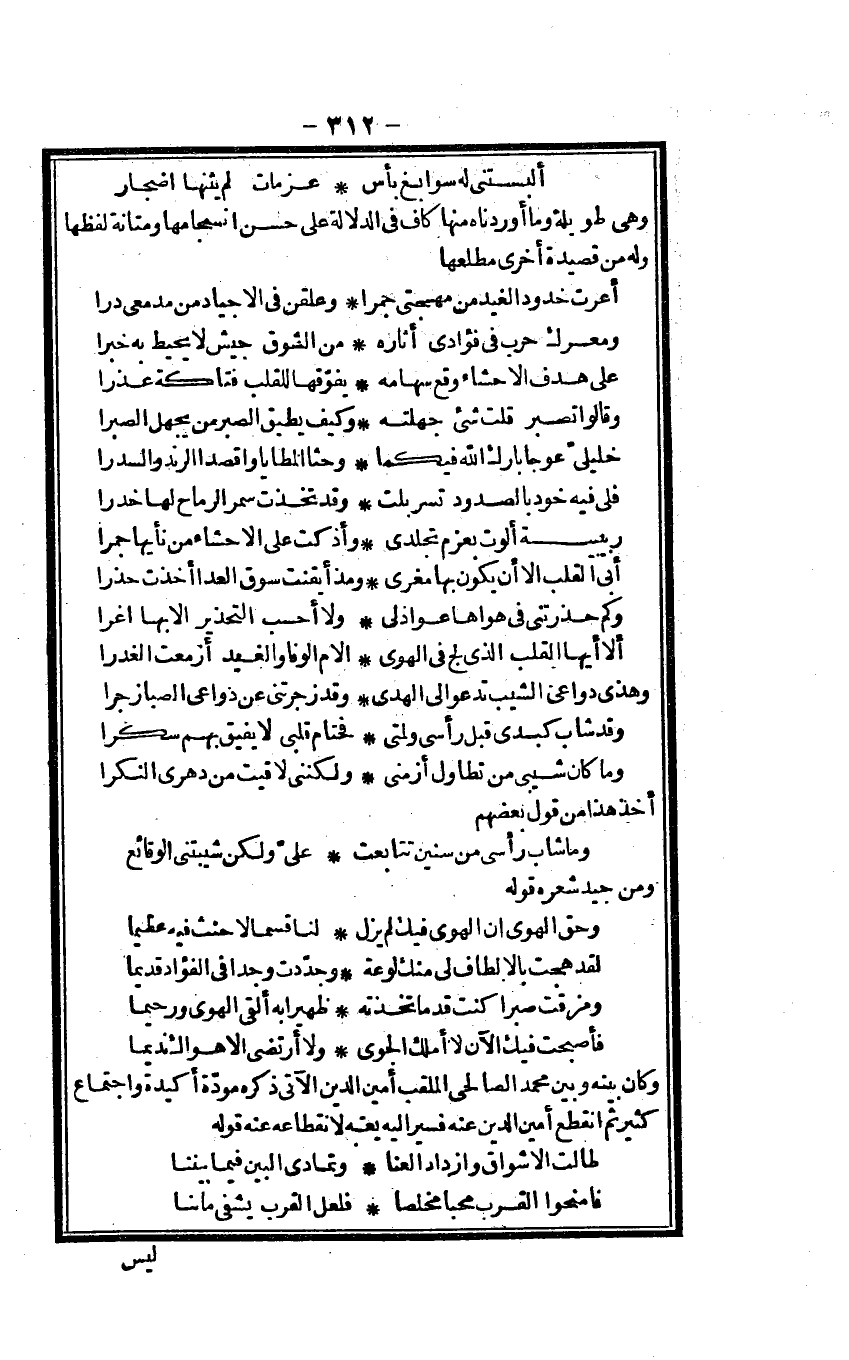 - ٣١٢ -
ألبستنى له سوابغ بأس * عزمات لم يثنها اضجار
وهى طويلة وما أوردناه منها كاف فى الدلالة على حسن انسجامها ومتانة لفظها
وله من قصيدة أخرى مطلعها
أعرت خدود الغيد من مهجتى جمرا * وعلقن فى الاجياد من مدمعى درا
ومعرك حرب فى فؤادى أثاره * من الشوق جيش لا يحيط به خبرا
على هدف الاحشاء وقع سهامه * يفوّقها للقلب فتاكة عذرا
وقالوا تصبر قلت شئ جهلته * وكيف يطيق الصبر من يجهل الصبرا
خليلىّ عوجا بارك الله فيكما * وحثا المطايا واقصدا الرند والسدرا
فلى فيه خود بالصدود تسربلت * وقد تخذت سمر الرماح لها خدرا
ربيبة ألوت بعزم تجلدى * وأذكت على الاحشاء من نأيها جمرا
أبى القلب الا أن يكون بها مغرى * ومذ أيقنت سوق العدا أخذت حذرا
وكم حذرتنى فى هواها عواذلى * ولا أحسب التحذير الا بها اغرا
ألا أيها القلب الذى لج فى الهوى * الام الوفا والغيد أزمعت الغدرا
وهذى دواعى الشيب تدعو الى الهدى * وقد زجرتنى عن دواعى الصبا زجرا
وقد شاب كبدى قبل رأسى ولمتى * فحتام قلبى لا يفيق بهم سكرا
وما كان شيبى من تطاول أزمنى * ولكننى لاقيت من دهرى النكرا
أخذ هذا من قول بعضهم
وما شاب رأسى من سنين تتابعت * علىّ ولكن شيبتنى الوقائع
ومن جيد شعره قوله
وحق الهوى ان الهوى فيك لم يزل * لنا قسما لا حنث فيه عظيما
لقد هجت بالالطاف لى منك لوعة * وجدّدت وجدا فى الفؤاد قديما
ومزقت صبرا كنت قدما تخذته * ظهيرا به ألقى الهوى ورحيما
فأصبحت فيك الآن لا أملك الجوى * ولا أرتضى الا هواك نديما
وكان بينه وبين محمد الصالحى الملقب أمين الدين الآتى ذكره مودّة أكيدة واجتماع
كثير ثم انقطع أمين الدين عنه فسير اليه يعتبه لانقطاعه عنه قوله
طالت الاشواق وازداد العنا * وتمادى البين فيما بيننا
فامنحوا القرب محبا مخلصا * فلعل القرب يشفى ما بنا
ليس